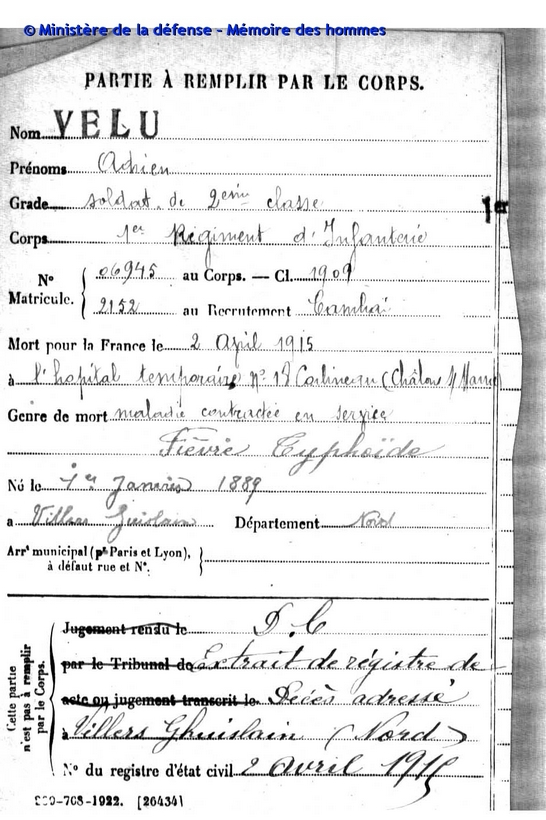 © Ministère de la défense - Mémoire des hommes
PARTIE À REMPLIR PAR LE CORPS.
Nom VELU
Prénoms Adrien
Grade soldat de 2ème classe
1er
Corps 1er Régiment d'Infanterie
Nº Matricule. { 06945 au Corps. — Cl. 1909
2152 au Recrutement Cambrai
Mort pour la France le 2 April 1915
à l'hopital temporaire Nº 13 (Châlons s/ Marne)
Genre de mort maladie contractée en service
Fièvre Typhoïde
Né le 1er Janvier 1889
a Villers Guislain Département Nord
Arrt municipal (pr Paris et Lyon), à défaut rue et Nº. }
Cette partie n'est pas à remplir par le Corps.
Jugement rendu le D.C
par le Tribunal de Extrait de régistre de
acte ou jugement transcrit le Décès adressé
à Villers Ghuislain (Nord)
Nº du registre d'état civil 2 avril 1915
-708-1922. [26434]